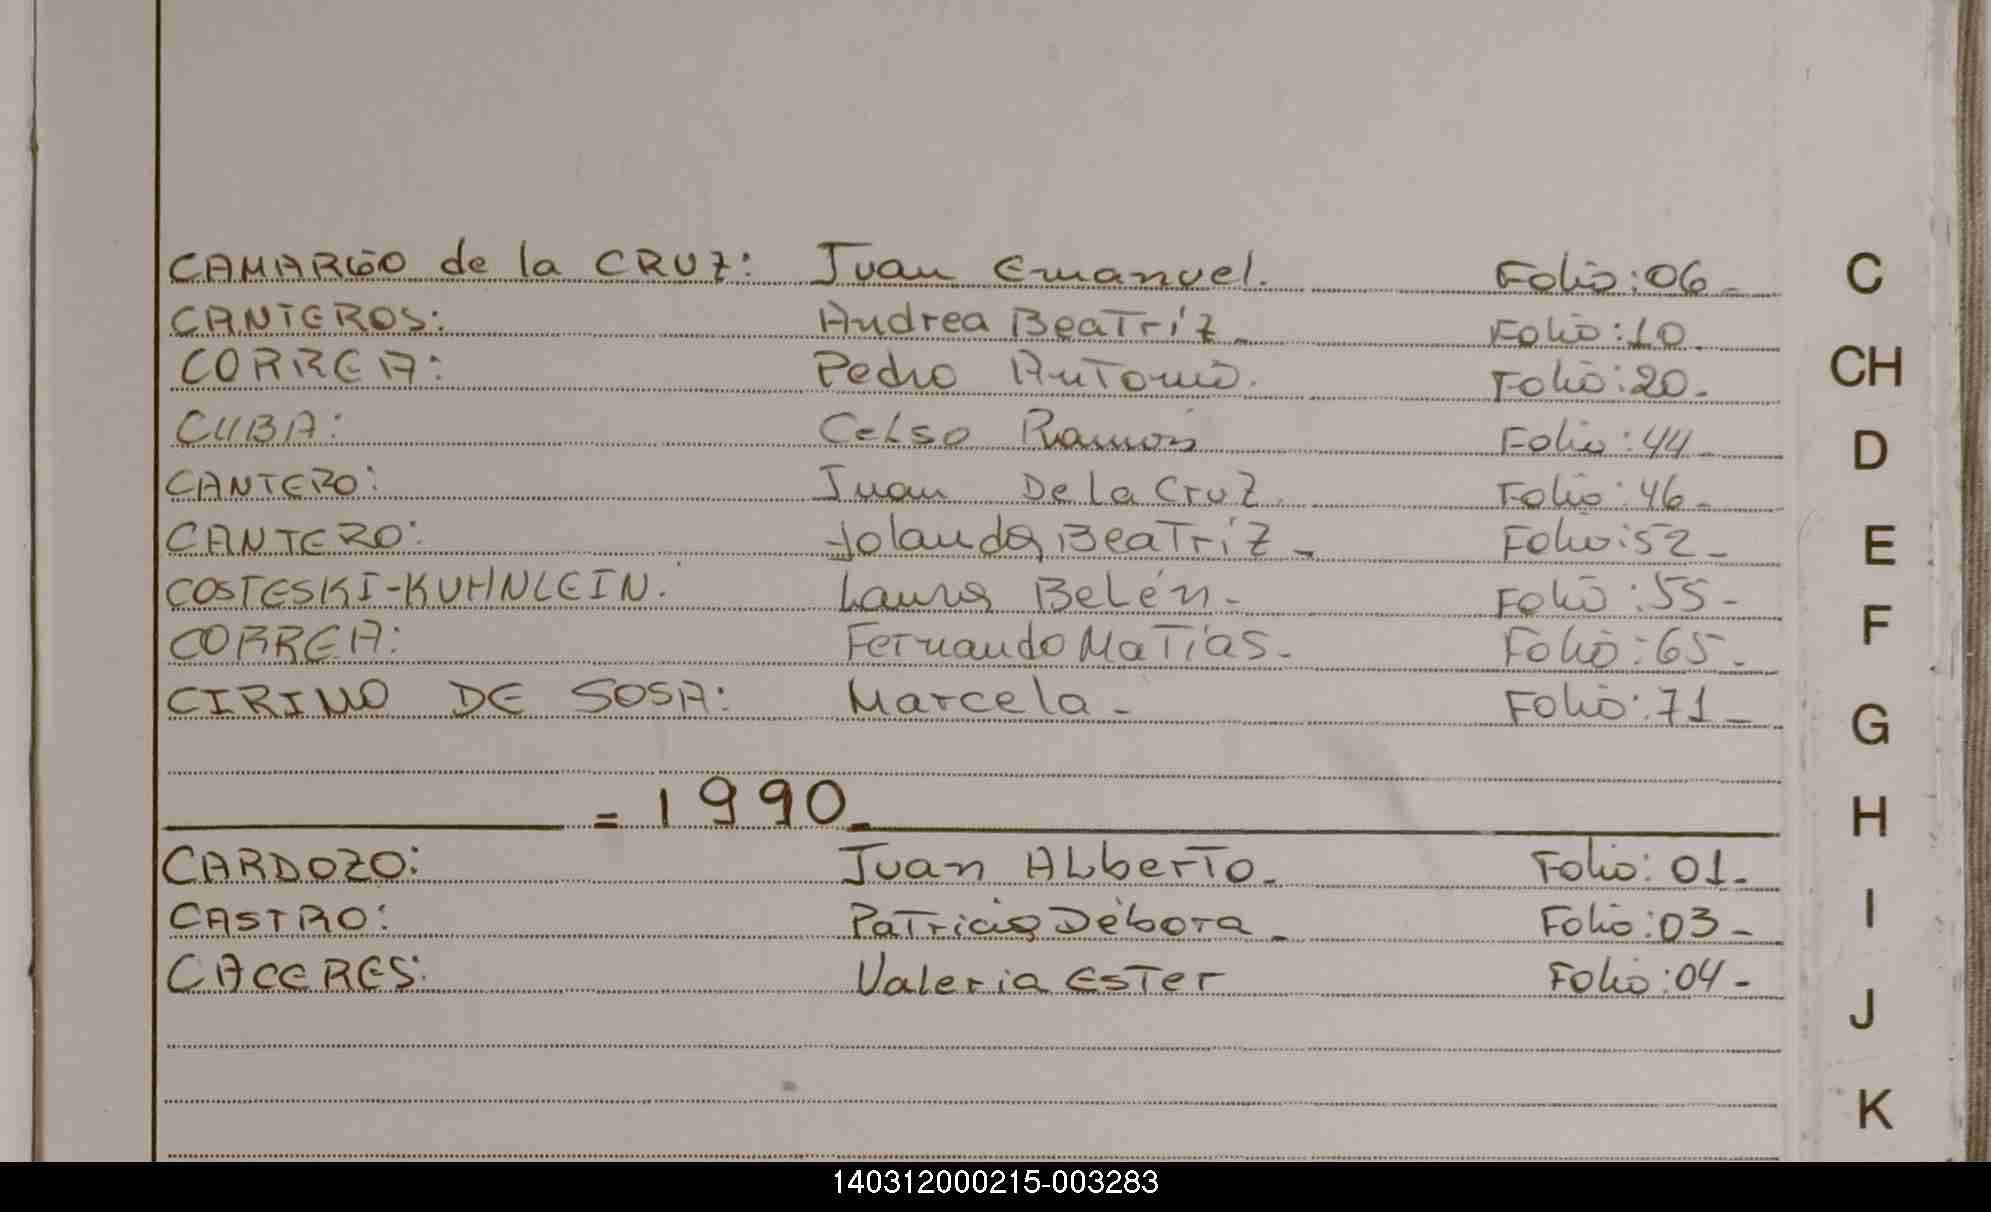 CAMARGO de la CRUZ: Juan Emanuel. Folio:06-
CANTEROS: Andrea Beatríz- Folio:10-
CORREA: Pedro Antonio. Folio:20-
CUBA: Celso Ramón Folio:44-
CANTERO: Juan De La Cruz. Folio:46-
CANTERO: Yolanda Beatríz- Folio:52-
COSTESKI-KUHNLEIN: Laura Belén- Folio:55-
CORREA: Fernando Matías- Folio:65-
CIRINO DE SOSA: Marcela- Folio:71-
= 1990-
CARDOZO: Juan Alberto- Folio: 01-
CASTRO: Patricia Débora- Folio:03-
CACERES: Valeria Ester Folio:04-
C
CH
D
E
F
G
H
I
J
K
140312000215-003283